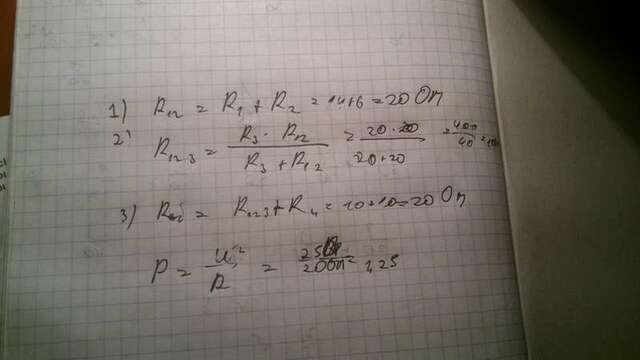 1) R₁₂ = R₁ + R₂ = 14+6 = 20 Om
2) R₁₂₃ = R₃ · R₁₂ / R₃ + R₁₂ = 20 · 20 / 20 + 20 = 400 / 40 = 10
3) R = R₁₂₃ + R₄ = 10 + 10 = 20 Om
P = U² / R = 25 / 20 Om = 1,25